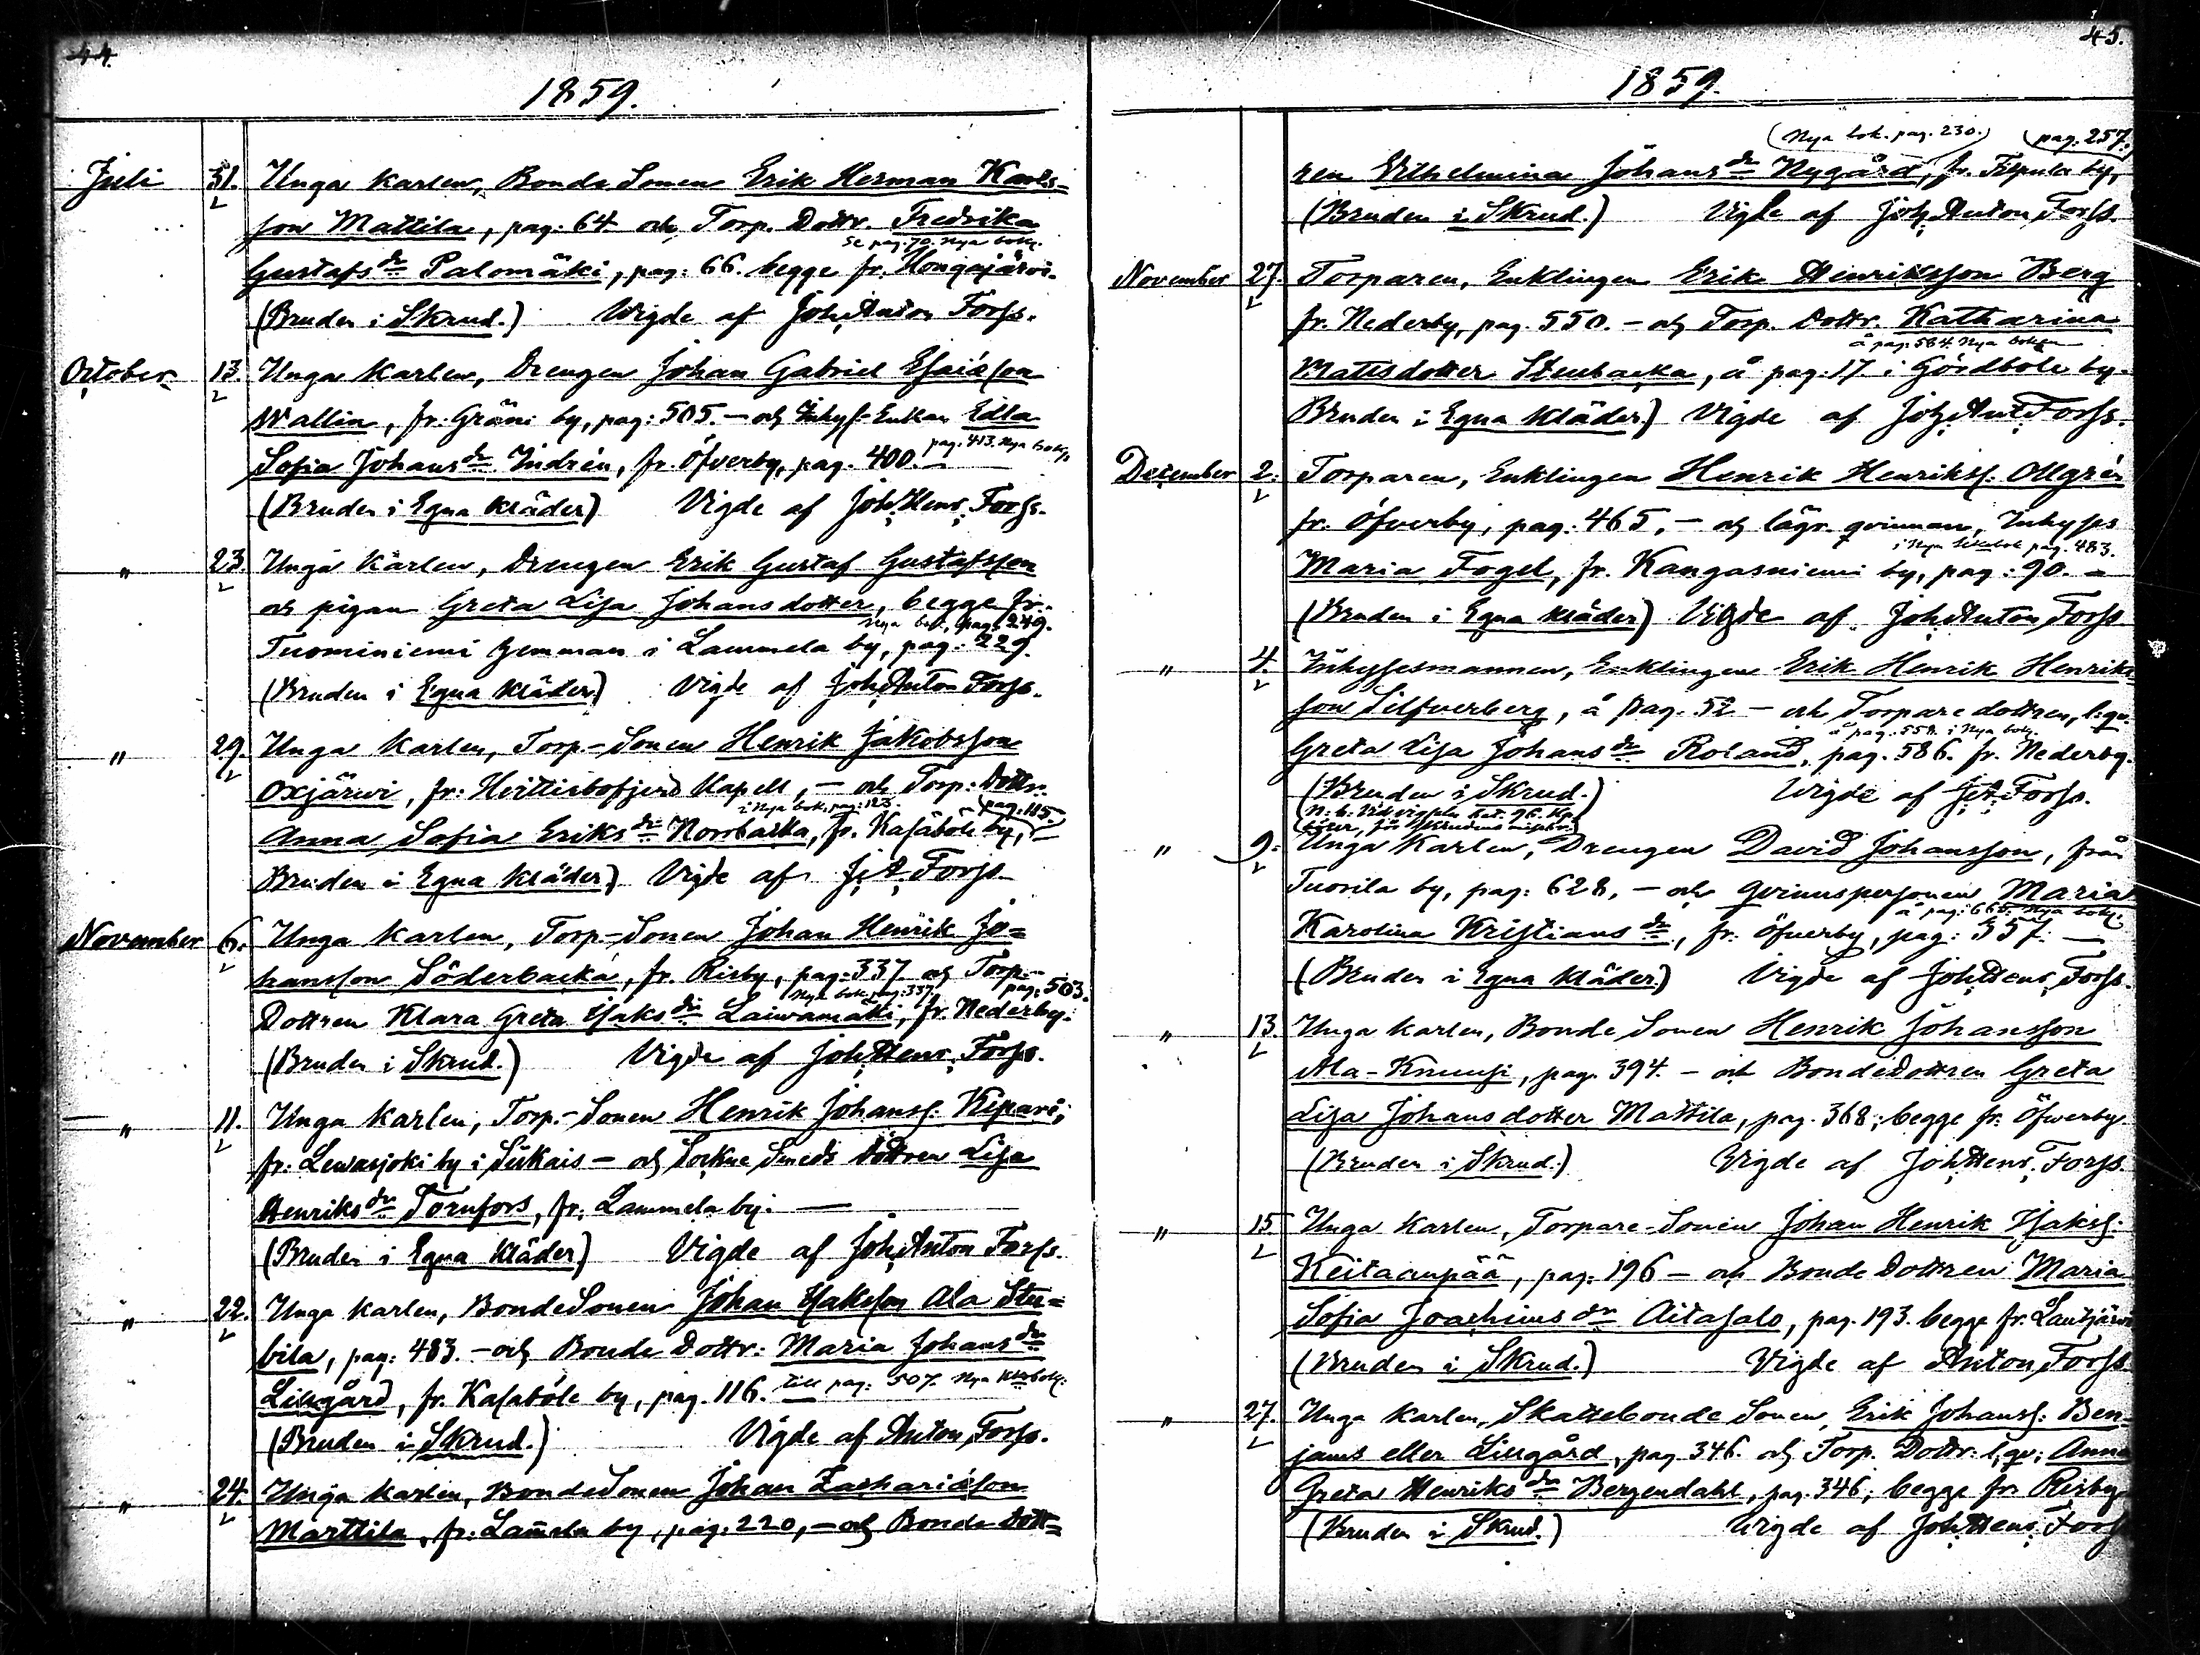 44.
1859.
Juli 31. Unga Karlen, Bonde Sonen Erik Herman Karls-
son Mattila, pag: 64 och Torp. Dottr. Fredrika
se pag: 70. Nya boken.
Gustafsdr Palomäki, pag: 66. begge fr. Hongajärvi.
(Bruden i Skrud.) Vigde af Joh. Anton Forss.
October 13. Unga Karlen, Drengen Johan Gabriel Esaiesson
Wallin, fr. Gräni by, pag: 505. – och Inhys-Enkan Edla
pag. 413. Nya boken
Sofia Johansdr Indrén, fr. Öfverby, pag. 400. –
(Bruden i Egna Kläder) Vigde af Joh. Henr. Forss.
" 23. Unga Karlen, Drengen Erik Gustaf Gustafsson
och pigan Greta Lisa Johansdotter, begge fr.
Nya bok. pag. 249.
Tuominiemi hemman i Lammela by, pag: 229.
(Bruden i Egna Kläder) Vigde af Joh. Anton Forss.
" 29. Unga Karlen, Torp-Sonen Henrik Jakobsson
Oxjärvi, fr: Hvittisbofjerd Kapell, – och Torp: Dottr.
i Nya bok. pag: 123. pag. 115.
Anna Sofia Eriksdr Norrbacka, fr. Kasaböle by,
Bruden i Egna Kläder) Vigde af J. A. Forss
November 6. Unga Karlen, Torp-Sonen Johan Henrik Jo=
hansson Söderbacka, fr. Risby, pag: 337. och Torp-
Nya bok. pag: 337. pag: 503.
Dottren Klara Greta Isaksdr Laivamäki, fr. Nederby.
(Bruden i Skrud.) Vigde af Joh. Henr. Forss.
" 11. Unga Karlen, Torp.-Sonen Henrik Johanss. Kipari;
fr. Lewasjoki by i Siikais – och Sockne Smeds Dottren Lisa
Henriksdr Törnfors, fr. Lammela by. –
(Bruden i Egna Kläder) Vigde af Joh. Anton Forss.
" 22. Unga Karlen, BondeSonen Johan Isaksson Ala Stu=
bila, pag: 483. – och Bonde Dottr: Maria Johansdr
Lillgård, fr. Kasaböle by, pag. 116. till pag: 507. Nya boken.
(Bruden i Skrud.) Vigde af Anton Forss.
" 24. Unga Karlen, BondeSonen Johan Zachariesson
Marttila, fr. Lam̄ela by, pag. 220, – och Bonde Dott=
45.
1859.
(Nya bok. pag. 230.) pag. 257.
ren Vilhelmina Johansdr Nygård, fr. Filpula by,
(Bruden i Skrud.) Vigde af Joh. Anton Forss.
November 27. Torparen, Enklingen Erik Henriksson Berg
fr. Nederby, pag. 550. – och Torp. Dottr. Katharina
å pag: 584. Nya boken
Mattsdotter Stenbacka, å pag: 17 i Gördböle by.
Bruden i Egna Kläder) Vigde af Joh. Ant. Forss.
December 2. Torparen, Enklingen Henrik Henrikss. Ollgrén
fr. Öfverby, pag. 465, – och lägr. qvinnan, Inhyses
i Nya pag. 483.
Maria Fogel, fr. Kangasniemi by, pag: 90. –
(Bruden i Egna Kläder) Vigde af Joh. Anton Forss
" 4. Inhysesmannen, Enklingen Erik Henrik Henriks
son Silfverberg, å pag. 52 – och Torpare dottren, l: qv.
å pag. 554. i Nya bok.
Greta Lisa Johansdr Roland, pag. 586. fr. Nederby.
(Bruden i Skrud.) Vigde af J. A. Forss.
" 9. Unga Karlen, Drengen David Johansson, från
Tuorila by, pag: 628, – och qvinnspersonen Maria
Nya boken.
Karolina Kristiansdr, fr. Öfverby, pag: 357. –
(Bruden i Egna Kläder.) Vigde af Joh. Henr. Forss.
" 13. Unga Karlen, Bonde Sonen Henrik Johansson
Ala-Knuusi, pag. 394. – och BondeDottren Greta
Lisa Johansdotter Mattila, pag. 368; begge fr. Öfverby.
(Bruden i Skrud.) Vigde af Joh. Henr. Forss.
" 15. Unga Karlen, Torpare-Sonen Johan Henrik Isakss.
Keitaanpää, pag. 196 – och Bonde Dottren Maria
Sofia Joachimsdr Aitasalo, pag. 193. begge fr. Lautjärvi
(Bruden i Skrud.) Vigde af Anton Forss.
" 27. Unga Karlen, Skattebonde Sonen, Erik Johanss. Ben-
jams eller Lillgård, pag. 346. och Torp. Dottr: l. qv: Anna
Greta Henriksdr Bergendahl, pag. 346; begge fr. Risby
(Bruden i Skrud.) Vigde af Joh. Henr. Forss